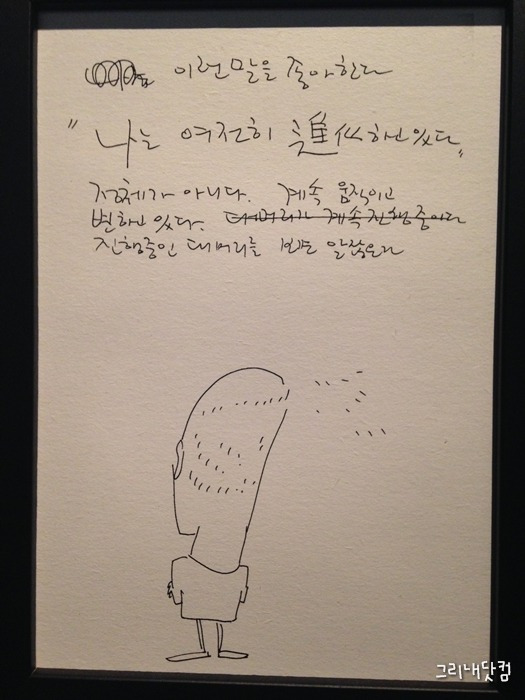 이런말을 좋아한다
"나는 여전히 進化하고 있다"
정체가 아니다. 계속 움직이고
변하고 있다. 대머리가 계속 진행중이다
진행중인 대머리를 보면
그리내닷컴